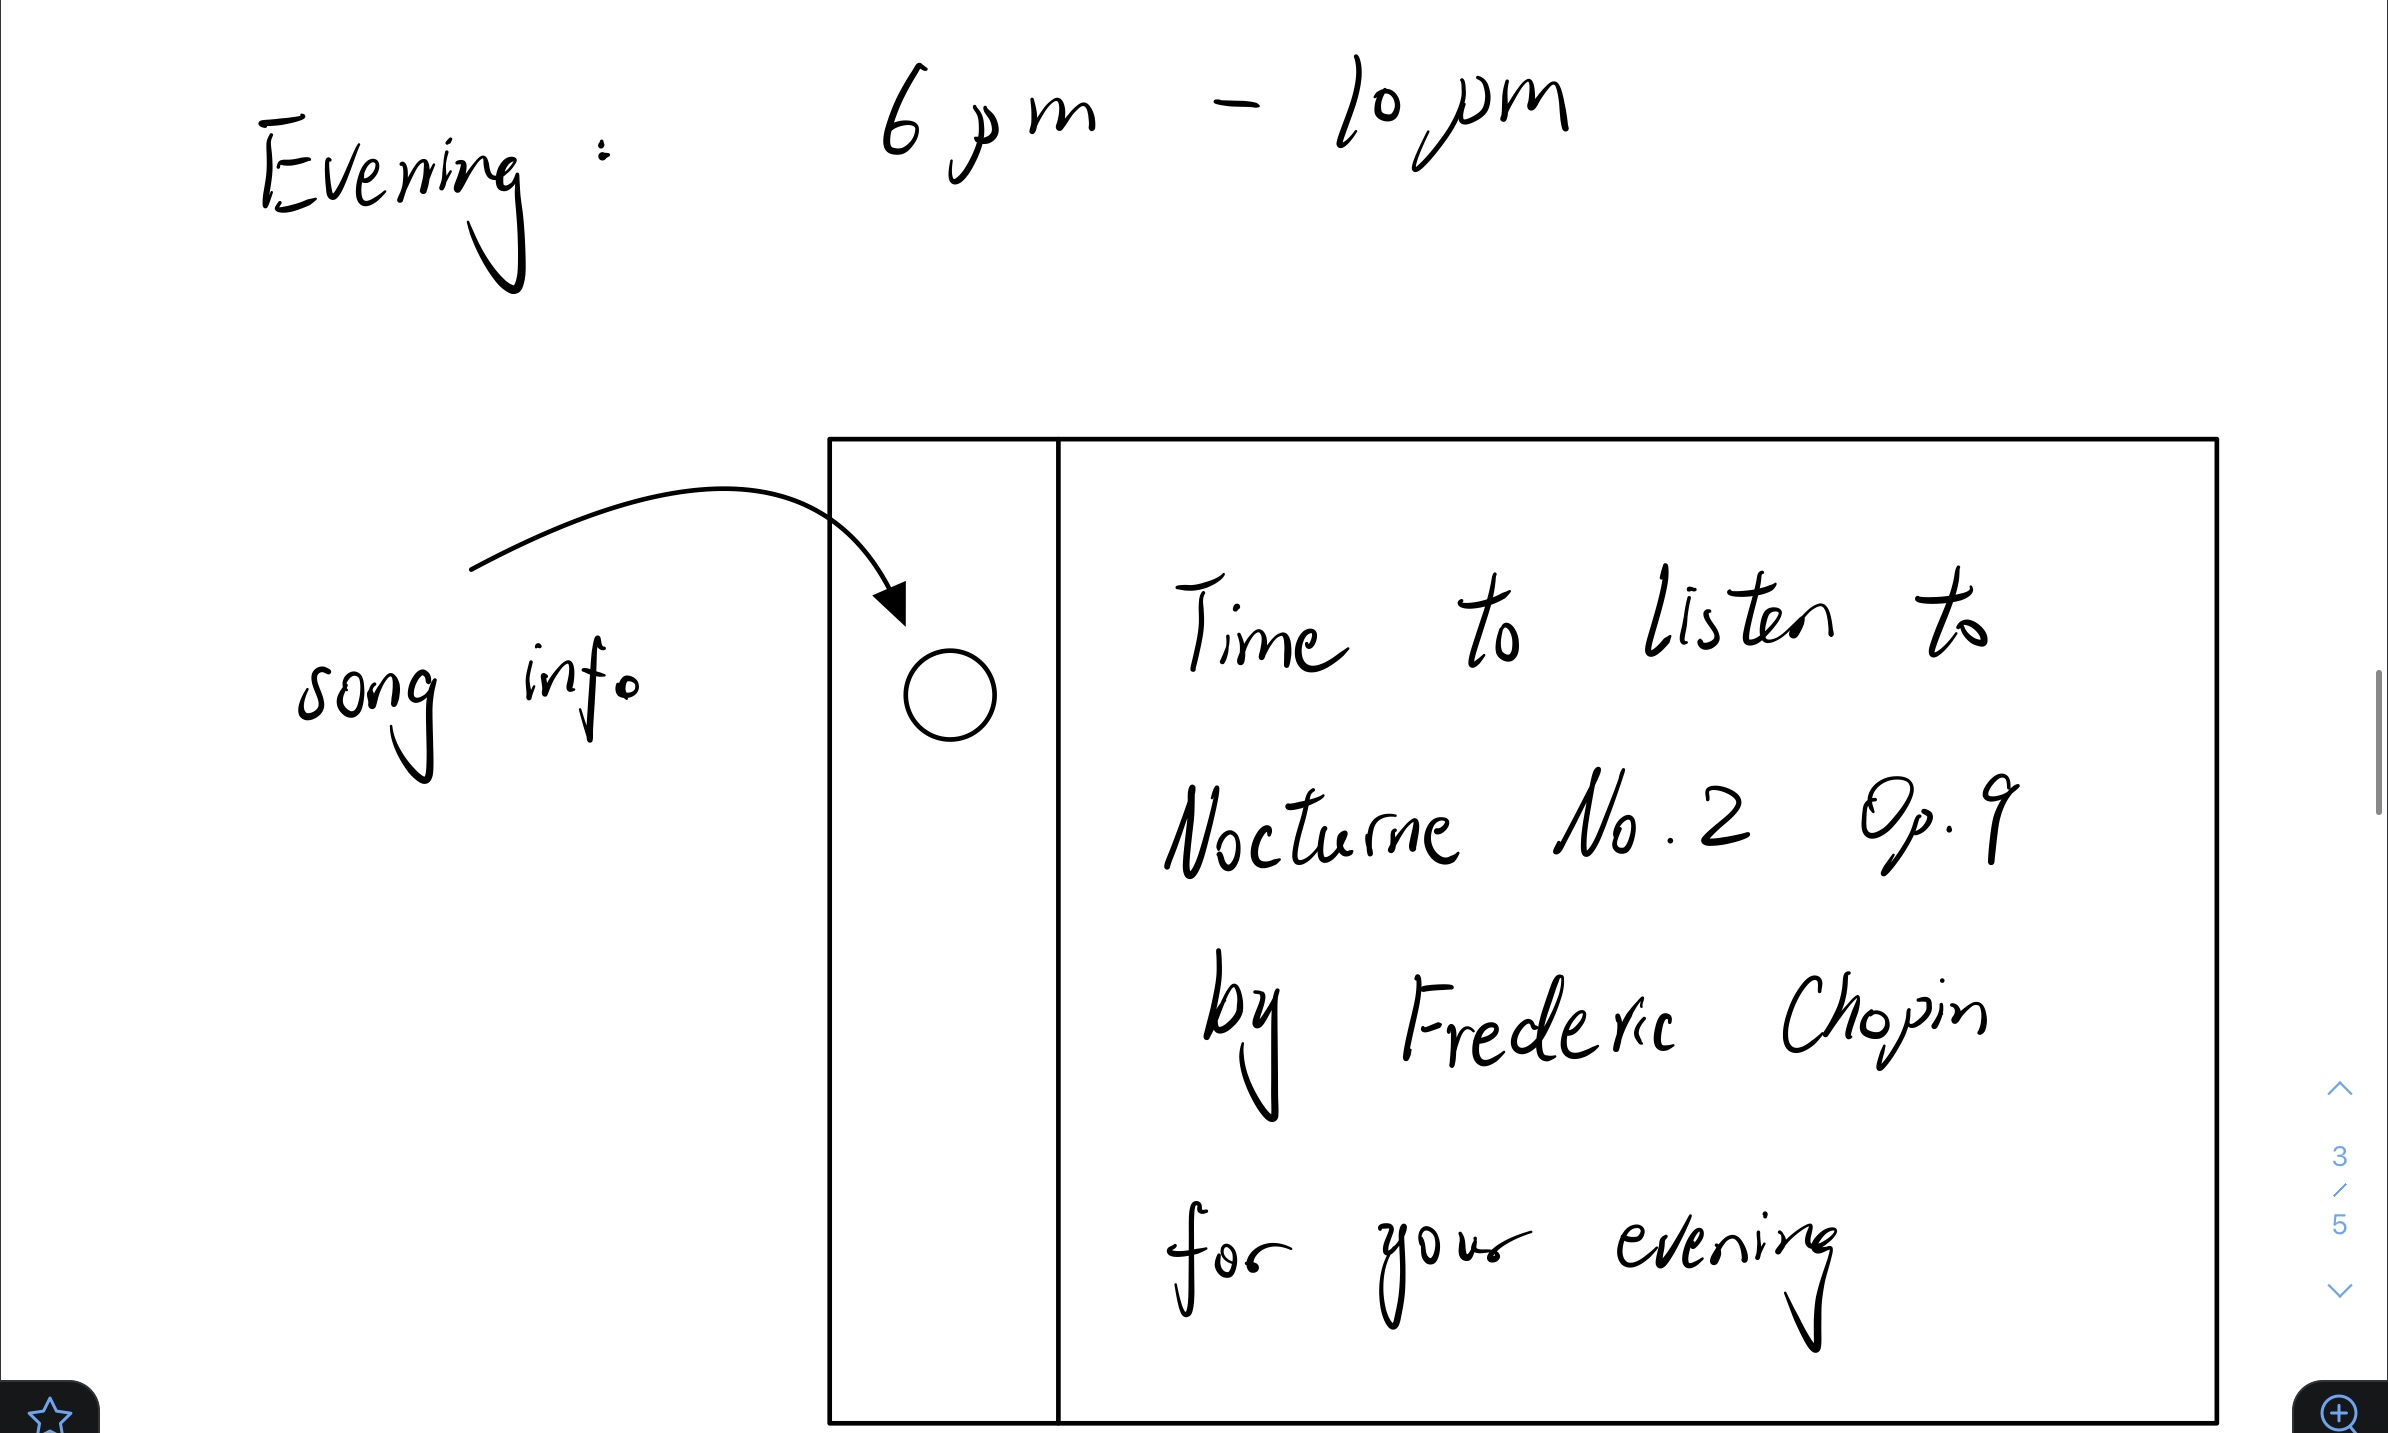 Evening : 6 pm - 10 pm
song info
Time to listen to
Nocturne No. 2 Op. 9
by Frederic Chopin
for your evening
3
/
5